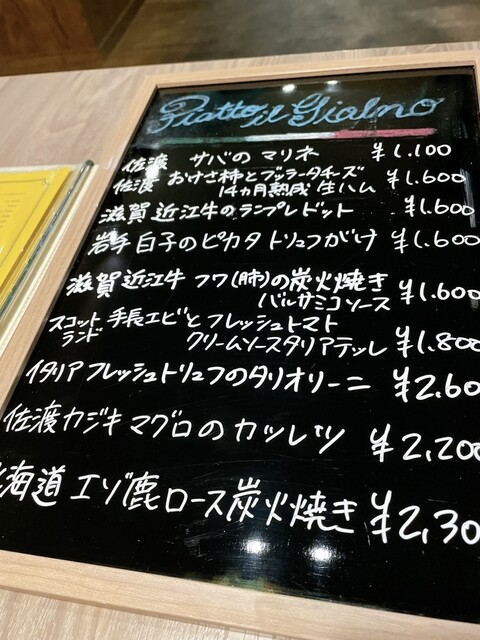 Piatto il Gialno
佐渡 サバのマリネ ¥1.100
佐渡 おけさ柿とブッラータチーズ ¥1.600
14ヵ月熟成 生ハム
滋賀 近江牛のランプレドット ¥1.600
岩手 白子のピカタ トリュフがけ ¥1.600
滋賀 近江牛 フワ(肺)の炭火焼き ¥1.600
バルサミコソース
スコットランド 手長エビとフレッシュトマト
クリームソースタリアテッレ ¥1.800
イタリアフレッシュトリュフのタリオリーニ ¥2.60
佐渡カジキマグロのカツレツ ¥2,200
海道 エゾ鹿ロース炭火焼き ¥2,30